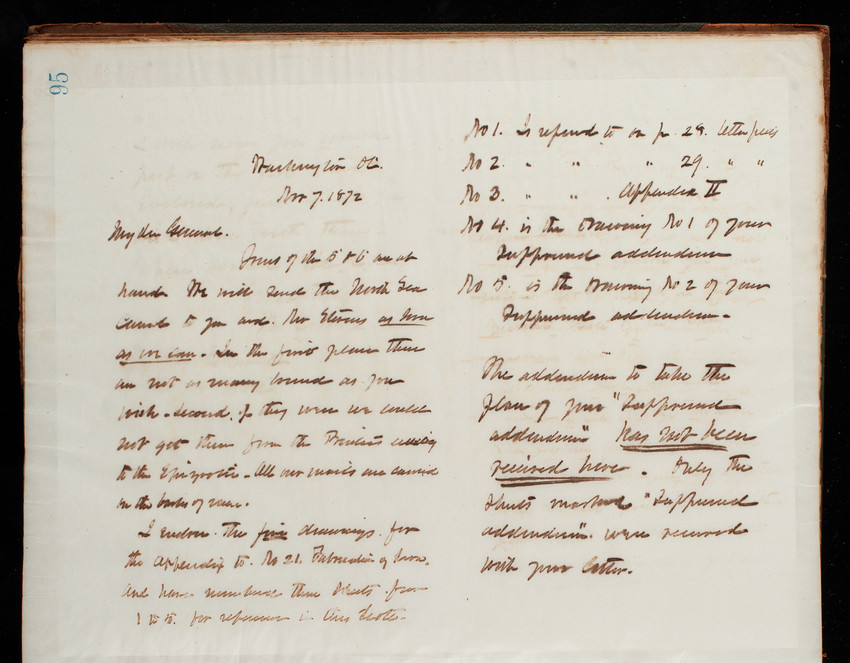 95
Washington DC.
Nov 7. 1872
My dear General.
Yours of the 5 & 6 are at
hand. We will send the North Sea
Canal to you and Mr Stevens as soon
as we can. In the first place there
are not as many bound as you
wish. Second, if they were we could
not get them from the Printers owing
to the Epizootic. All our mails are carried
on the backs of men.
I enclose the five drawings for
the Appendix to No 21. Fabrication of Iron.
and have numbered these sheets from
1 to 5. for reference in this letter.
No 1. Is referred to on p. 29. letter press
No 2. " " " 29. " "
No 3. " " . Appendix II
No 4. is the drawing No 1 of your
Suppressed addendum
No 5. is the drawing No 2 of your
Suppressed addendum.
The addendum to take the
place of your "Suppressed
addendum" has not been
received here. Only the
sheets marked "Suppressed
addendum" were received
with your letter.